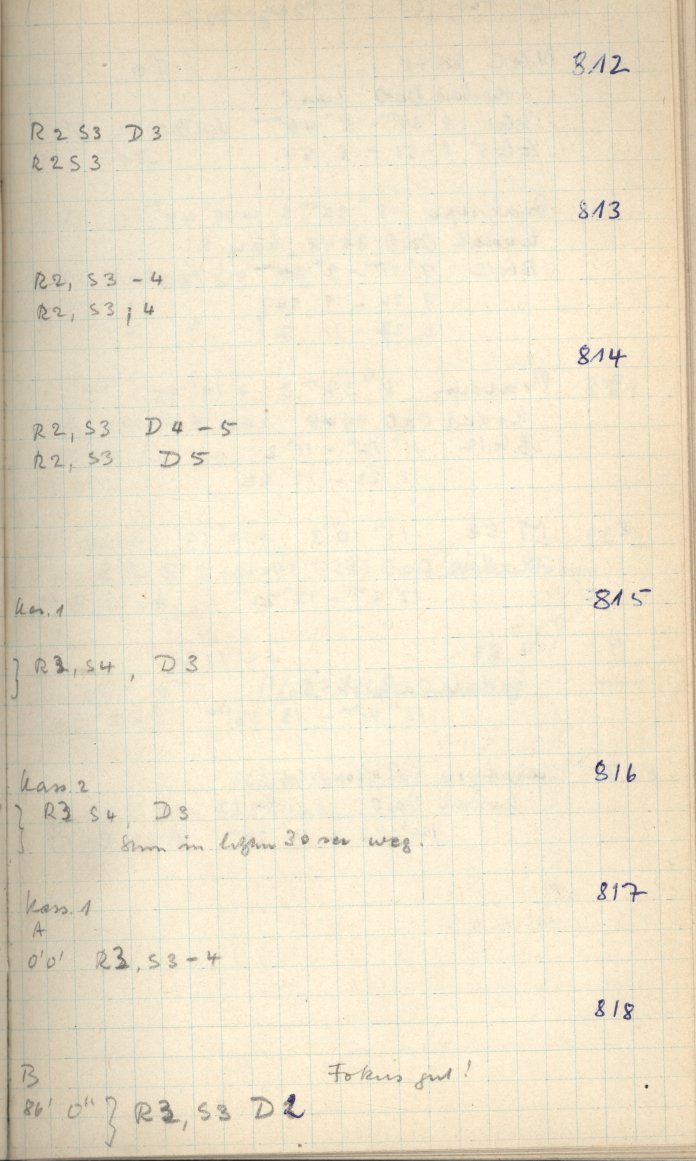 812
R2 S3 D3
R2S3
813
R2, S3 - 4
R2, S3; 4
814
R2, S3 D4 - 5
R2, S3 D5
815
Kas. 1
} R3, S4, D3
816
Kass. 2
} R3 S4, D3
in letzten 30 sec weg.
817
Kass. 1
A
0'0' R3, S3-4
818
B Fokus gut!
86' 0" } R3, S3 D2